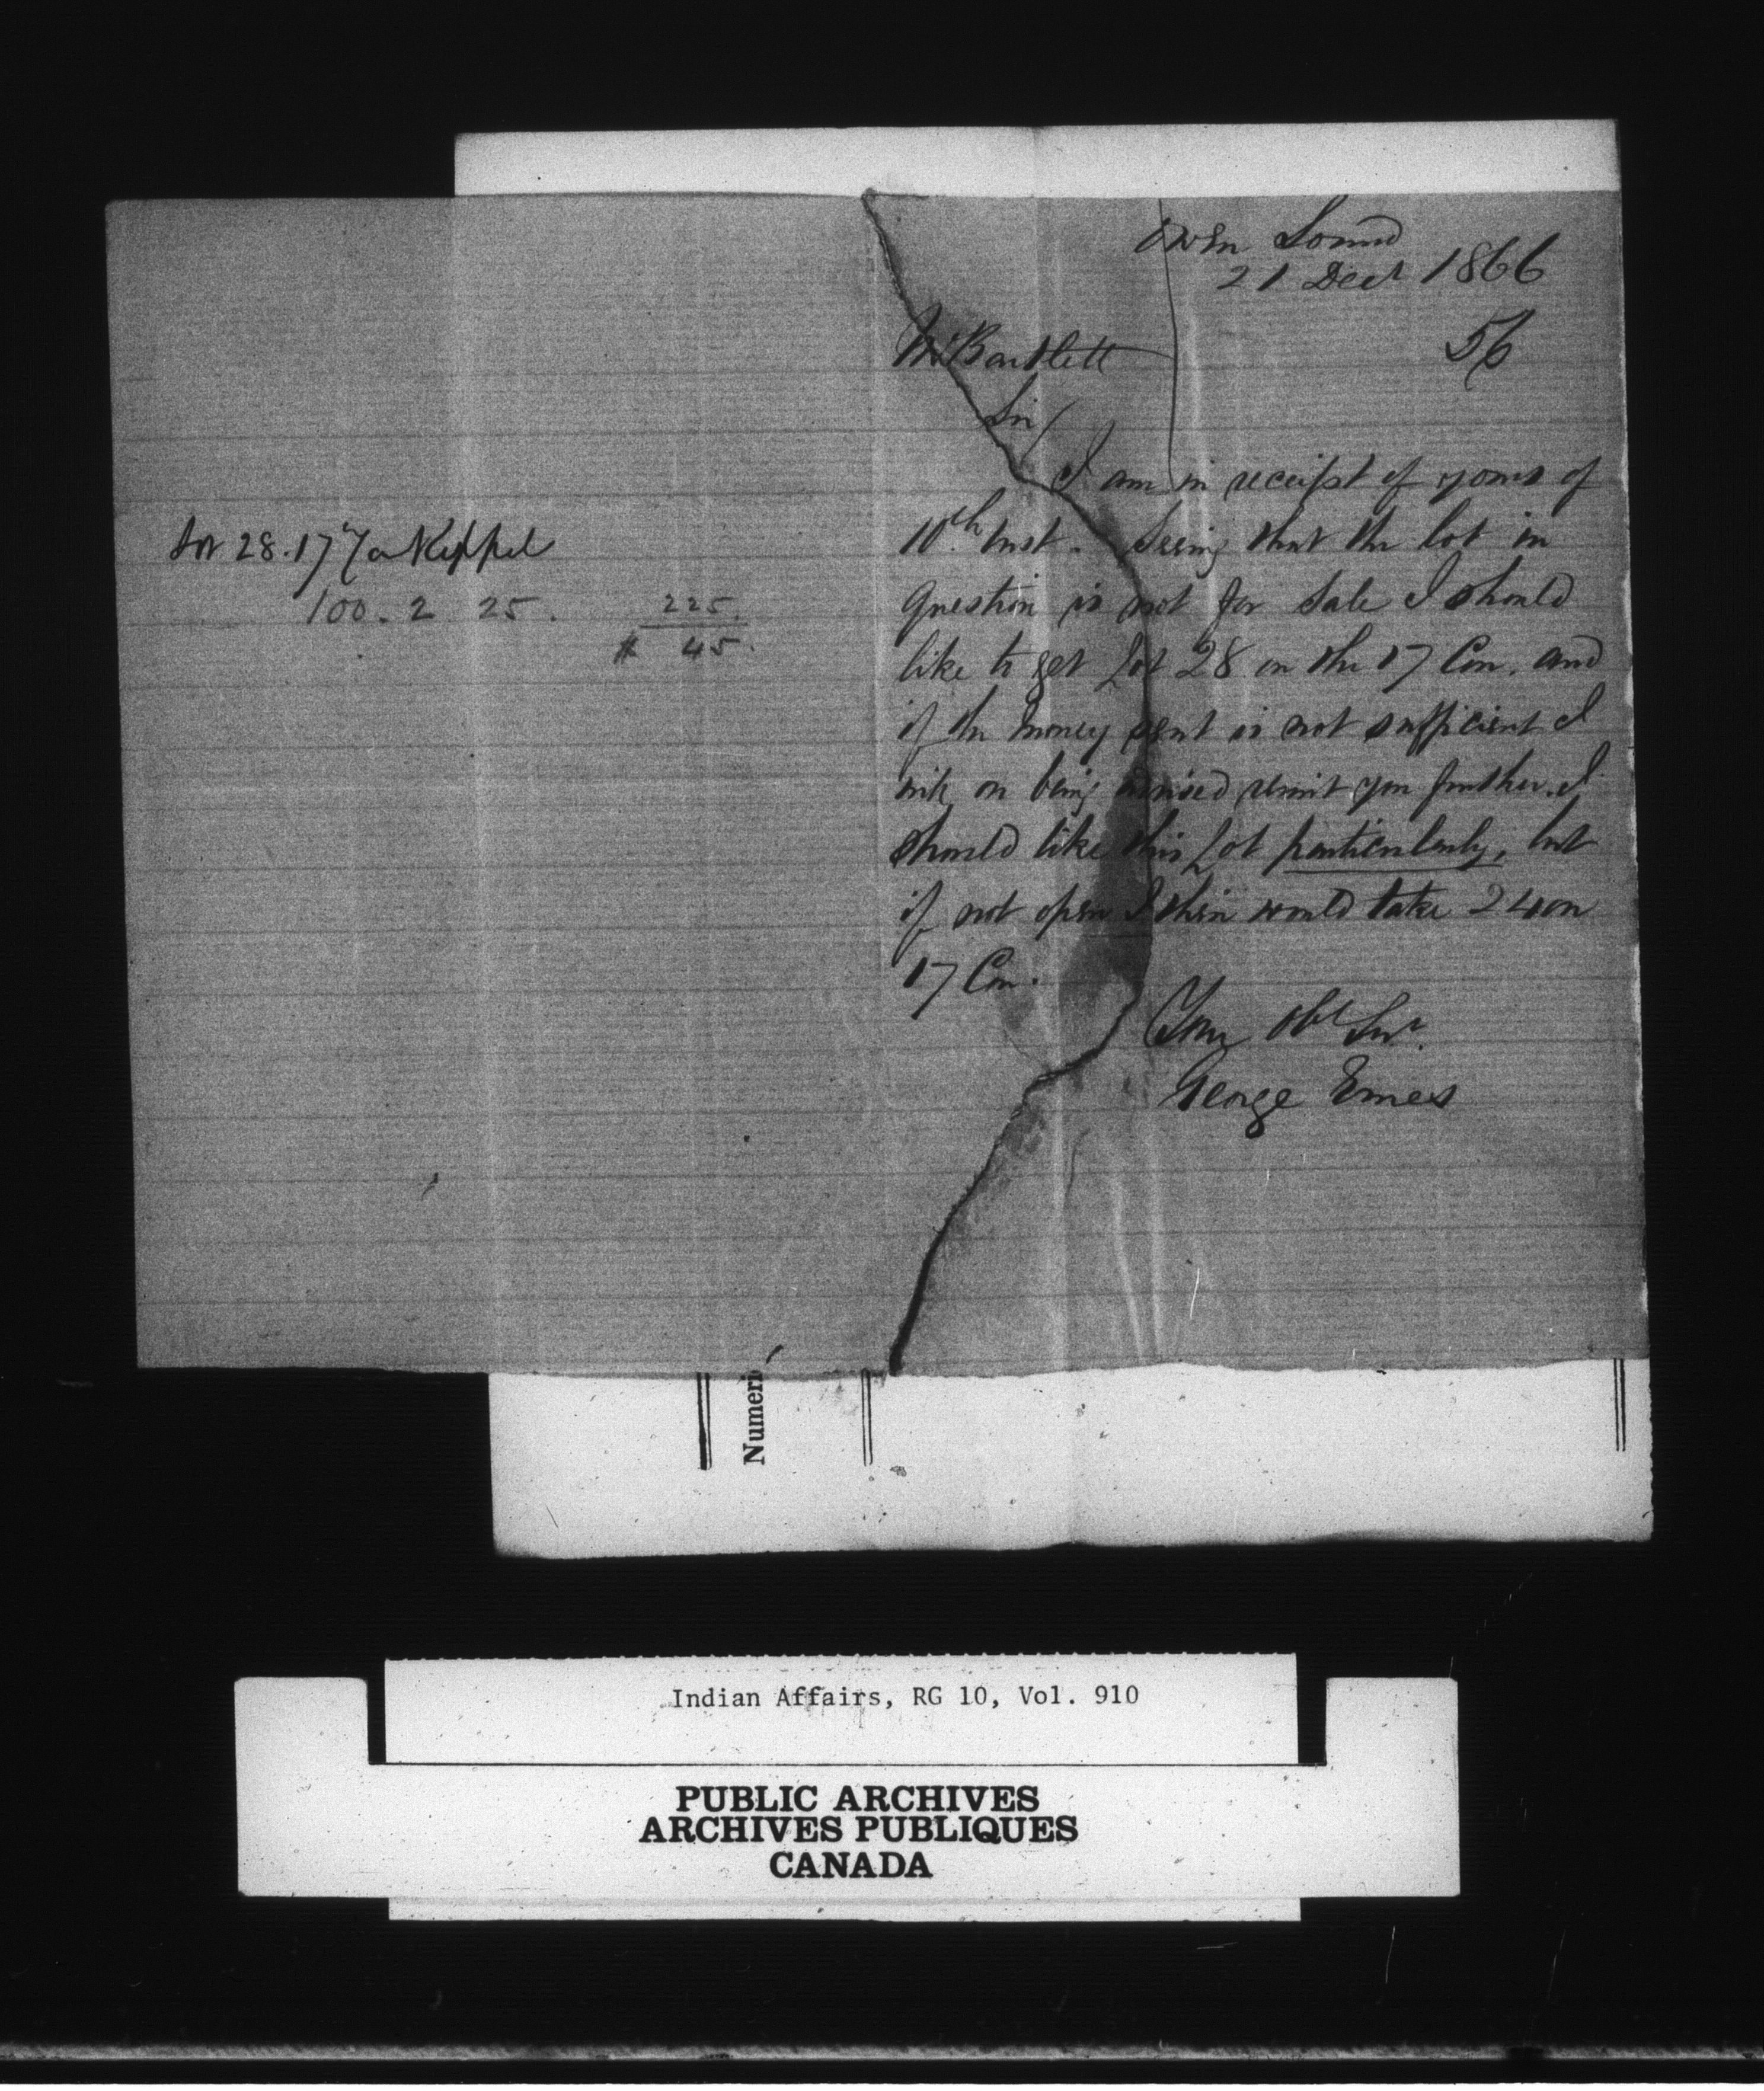 Owen Sound
21 Decr 1866
56
Mr Bartlett
Sir/
I am in receipt of yours of
10th Inst. Seeing that the lot in
Question is not for Sale I should
like to get Lot 28 on the 17 Con. and
if the money sent is not sufficient I
will on being advised remit you further. I
should like this Lot particularly, but
if not open I then would take 24 on
17 Con.
Your Obt Servt.
George Emes
Lot 28. 17 Con Keppel
100. 2 25. 225.
$ 45.
Numeri
Indian Affairs, RG 10, Vol. 910
PUBLIC ARCHIVES
ARCHIVES PUBLIQUES
CANADA